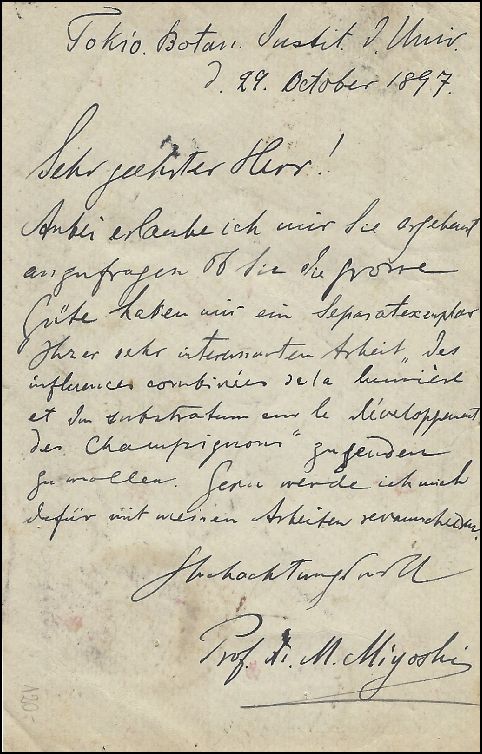 Tokio. Botan. Instit. d. Univ.
d. 29. October 1897.
Sehr geehrter Herr!
Anbei erlaube ich mir Sie ergebenst
anzufragen ob Sie die grosse
Güte haben mir ein Separatexemplar
Ihrer sehr interessanten Arbeit „Des
influences combinées de la lumière
et du substratum sur le développement
des Champignons" zusenden
zu wollen. Gern werde ich mich
dafür mit meinen Arbeiten revanchieren.
Hochachtungsvoll
Prof. Dr. M. Miyoshi
120-